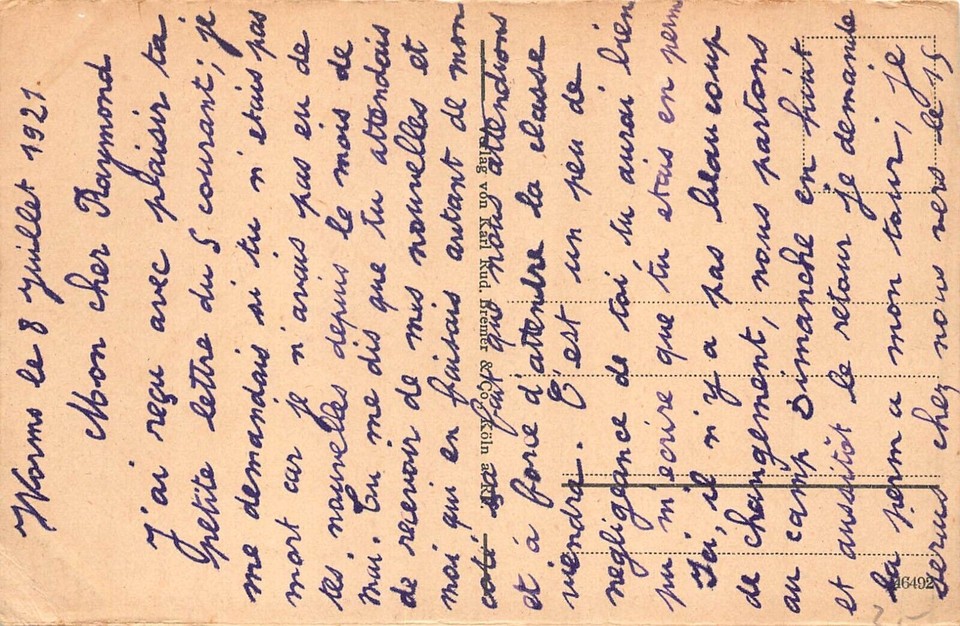 Worms le 8 Juillet 1921.
Mon cher Raymond
J'ai reçu avec plaisir ta
petite lettre du 5 courant ; je
me demandais si tu n'etais pas
mort car je n'avais pas eu de
tes nouvelles depuis le mois de
mai. Tu me dis que tu attendais
de recevoir de mes nouvelles et
moi qui en faisais autant de mon
coté fait que nous attendrons
et à force d'attendre la classe
viendra. C'est un peu de
negligeance de toi tu aurai bien
pu m'ecrire que tu etais en perm
Ici, il n'y a pas beaucoup
de changement, nous partons
au camp Dimanche en huit
et aussitôt le retour je demande
la perm a mon tour, je
serais chez nous vers le
Verlag von Karl Rud. Bremer & Co., Köln a. Rh.
46492
2,-